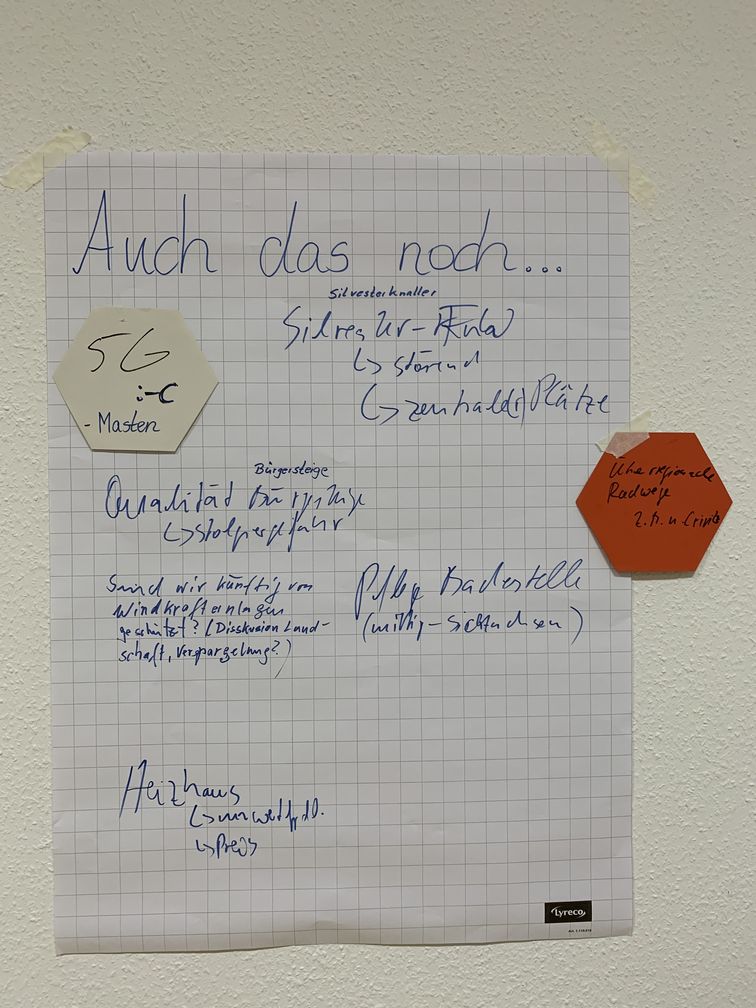 Auch das noch...
Silvesterknaller
Silvester-
↳ störend
↳ zentrale(r) Plätze
5G
:-C
- Masten
Überregionale
Radwege
z.B. n. Crivitz
Bürgersteige
Qualität Bürgersteige
↳ Stolpergefahr
Sind wir künftig von
Windkraftanlagen
geschützt? (Disskusion Land-
schaft, Verspargelung?)
Pflege Badestelle
(mittig - Sichtachsen)
Heizhaus
↳ umweltfrdl.
↳ Preis
Lyreco